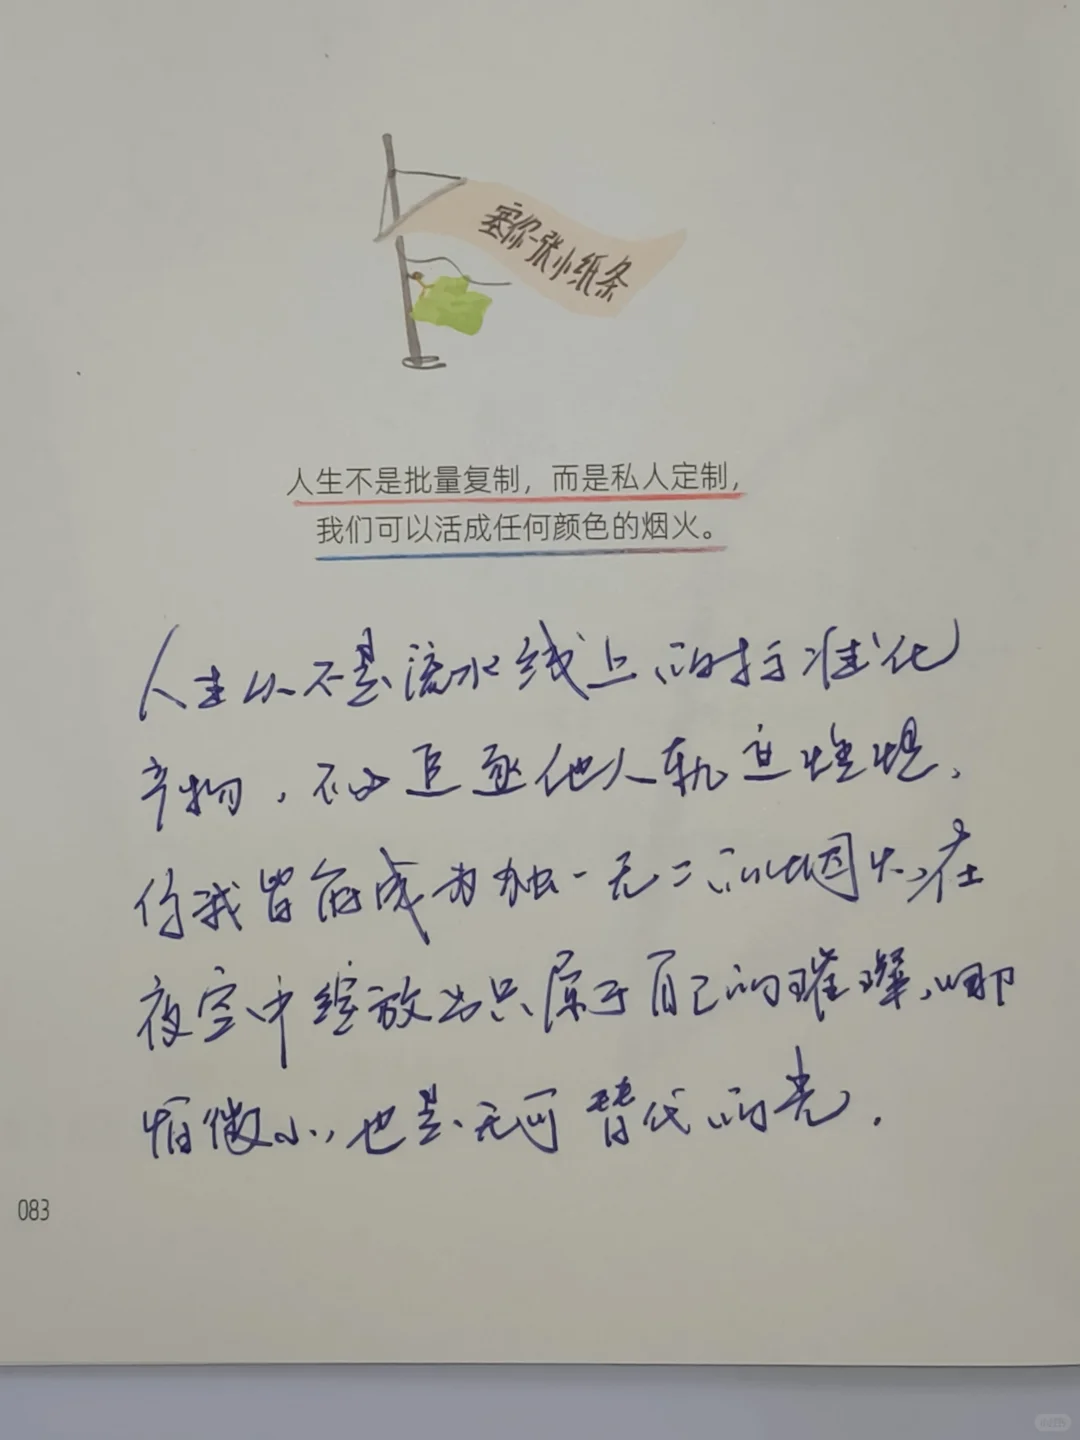 塞你一张小纸条
人生不是批量复制，而是私人定制，
我们可以活成任何颜色的烟火。
人生从不是流水线上的标准化
产物，不必追逐他人轨迹煌煌，
你我皆能成为独一无二的烟火，在
夜空中绽放出只属于自己的璀璨，哪
怕微小，也是无可替代的光。
083